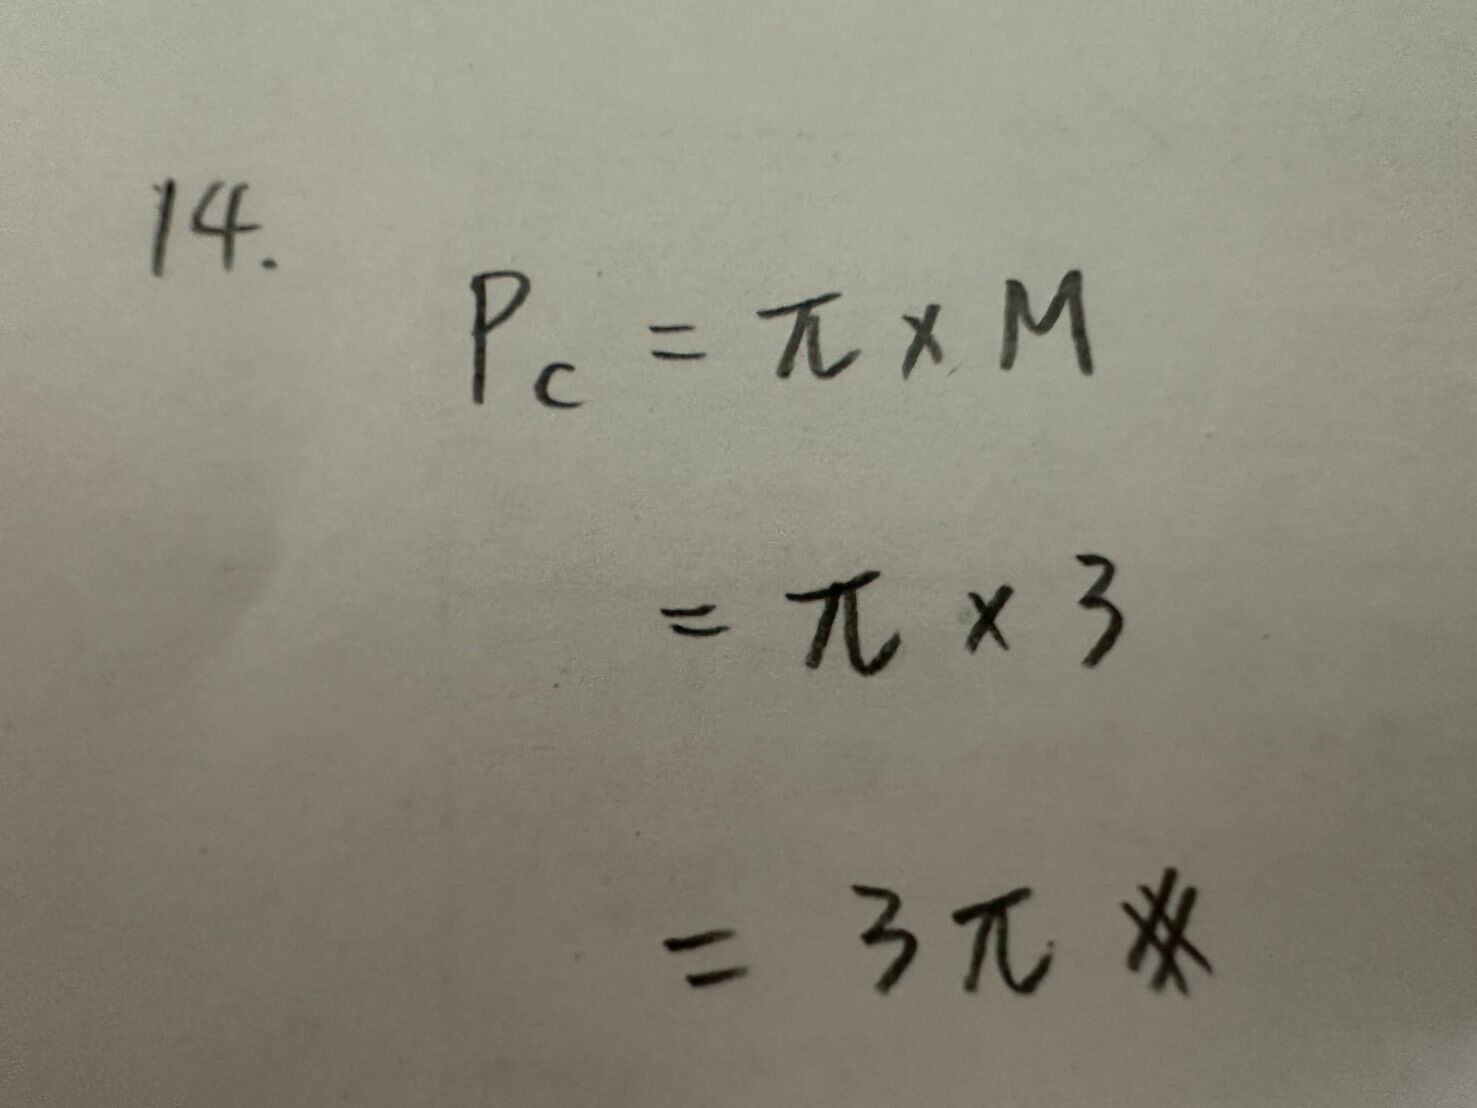 14.
Pc = π × M
= π × 3
= 3π